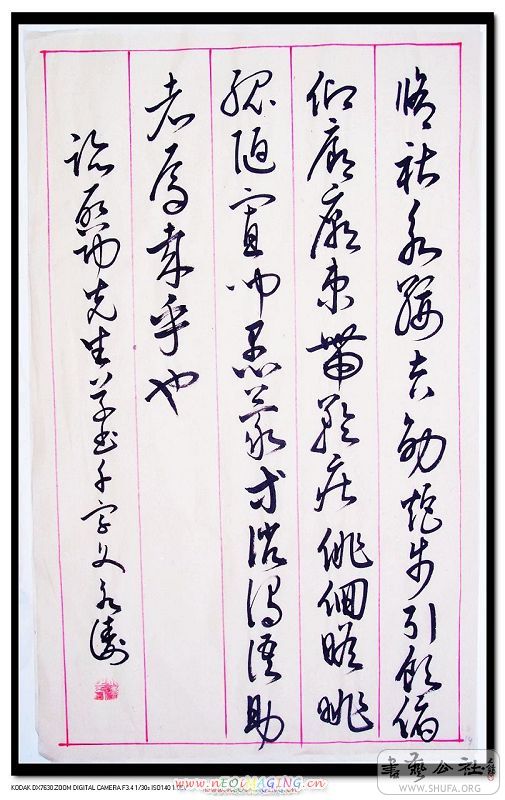 修祜永綏吉劭矩步引領俯
仰廊廟束帶矜莊徘徊瞻眺
孤陋寡聞愚蒙等誚謂語助
者焉哉乎也
臨啟功先生草書千字文永
KODAK DX7630 ZOOM DIGITAL CAMERA F3.4 1/30s ISO140
www.nEOiMAGING.cn
書藝公社
WWW.SHUFA.ORG